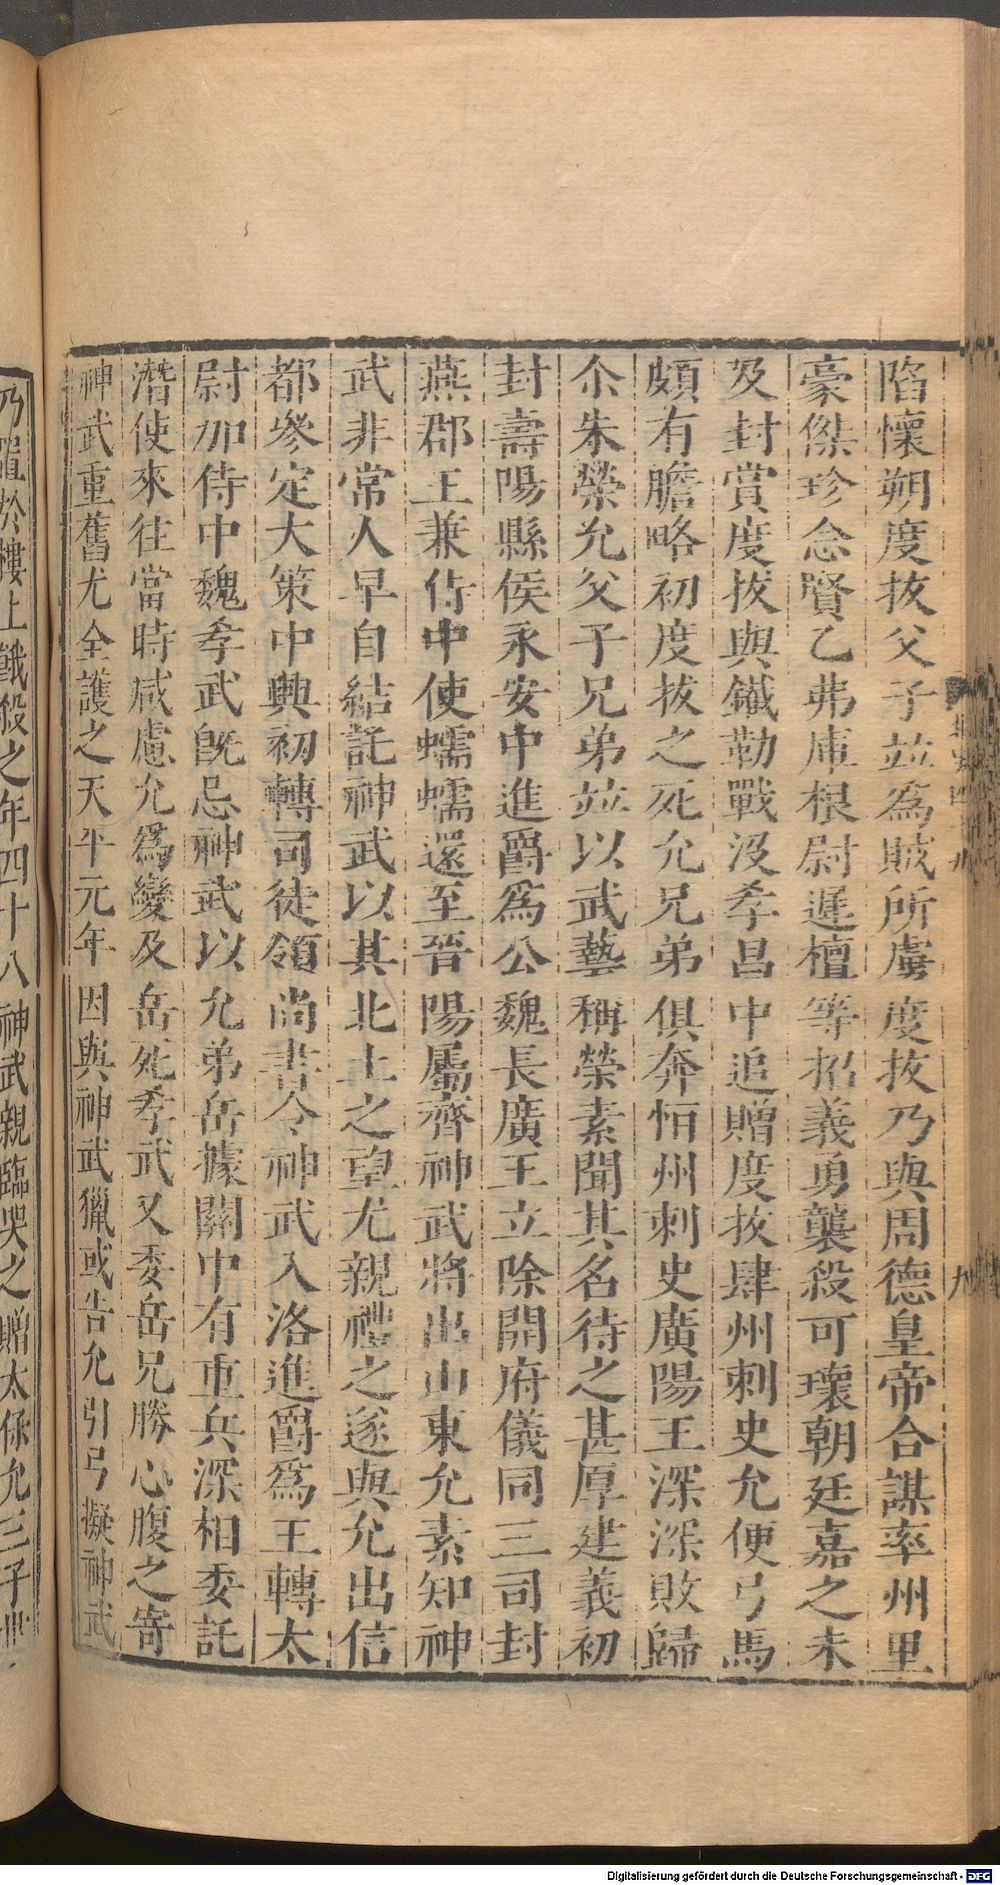 陷懷朔度拔父子並為賊所虜度拔乃與周德皇帝合謀率州里
豪傑珍念賢乙弗庫根尉遲檀等招義勇襲殺可瓌朝廷嘉之未
及封賞度拔與鐵勒戰没孝昌中追贈度拔肆州刺史允便弓馬
頗有膽略初度拔之死允兄弟俱奔恒州刺史廣陽王深深敗歸
尒朱榮允父子兄弟並以武藝稱榮素聞其名待之甚厚建義初
封壽陽縣侯永安中進爵為公魏長廣王立除開府儀同三司封
燕郡王兼侍中使蠕蠕還至晉陽屬齊神武將出山東允素知神
武非常人早自結託神武以其北土之望尤親禮之遂與允出信
都參定大策中興初轉司徒領尚書令神武入洛進爵為王轉太
尉加侍中魏孝武既忌神武以允弟岳據關中有重兵深相委託
潛使來往當時咸慮允為變及岳死孝武又委岳兄勝心腹之寄
神武重舊尤全護之天平元年因與神武獵或告允引弓擬神武
乃置於樓上餓殺之年四十八神武親臨哭之贈太保允三子世
Digitalisierung gefördert durch die Deutsche Forschungsgemeinschaft - DFG